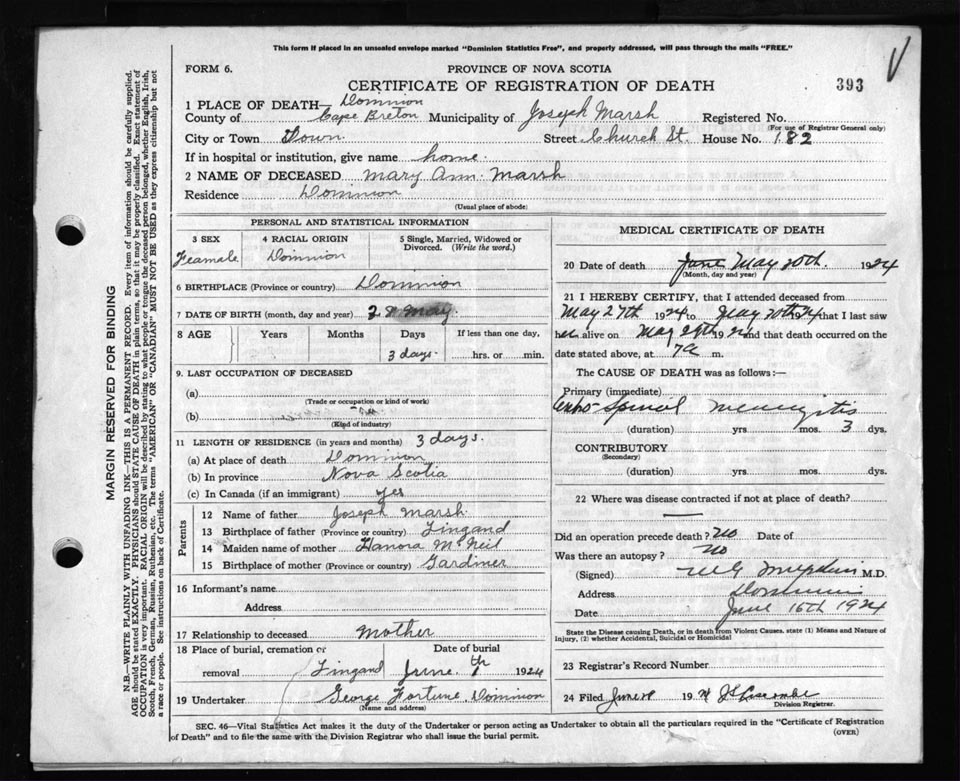 This form if placed in an unsealed envelope marked "Dominion Statistics Free", and properly addressed, will pass through the mails "FREE."
FORM 6.
PROVINCE OF NOVA SCOTIA
CERTIFICATE OF REGISTRATION OF DEATH
393
1 PLACE OF DEATH— Dominion
County of Cape Breton Municipality of Joseph Marsh Registered No.
(For use of Registrar General only)
City or Town Town Street Church St. House No. 182
If in hospital or institution, give name home.
2 NAME OF DECEASED Mary Ann Marsh
Residence Dominion
(Usual place of abode)
PERSONAL AND STATISTICAL INFORMATION
3 SEX
4 RACIAL ORIGIN
5 Single, Married, Widowed or Divorced. (Write the word.)
Feamale Dominion
6 BIRTHPLACE (Province or country) Dominion
7 DATE OF BIRTH (month, day and year) 28 May
8 AGE Years Months Days If less than one day.
3 days. hrs. or min.
9. LAST OCCUPATION OF DECEASED
(a)
(Trade or occupation or kind of work)
(b)
(Kind of industry)
11 LENGTH OF RESIDENCE (in years and months) 3 days.
(a) At place of death Dominion
(b) In province Nova Scotia
(c) In Canada (if an immigrant) yes
Parents
12 Name of father Joseph Marsh
13 Birthplace of father (Province or country) Lingand
14 Maiden name of mother Hanora McNeil
15 Birthplace of mother (Province or country) Gardiner
16 Informant's name
Address
17 Relationship to deceased mother
18 Place of burial, cremation or removal Date of burial
Lingand June 1924
19 Undertaker George Fortune Dominion
(Name and address)
MEDICAL CERTIFICATE OF DEATH
20 Date of death June May 30th. 1924
(Month, day and year)
21 I HEREBY CERTIFY, that I attended deceased from
May 27th 1924 to May 30th 1924 that I last saw
her alive on May 29th 1924 and that death occurred on the
date stated above, at 7a m.
The CAUSE OF DEATH was as follows:—
Primary (immediate)
Spinal Meningitis
(duration) yrs mos. 3 dys.
CONTRIBUTORY
(Secondary)
(duration) yrs. mos. dys.
22 Where was disease contracted if not at place of death?
Did an operation precede death? no Date of
Was there an autopsy? no
(Signed) M.D.
Address Dominion
Date June 16th 1924
State the Disease causing Death, or in death from Violent Causes, state (1) Means and Nature of Injury, (2) whether Accidental, Suicidal or Homicidal
23 Registrar's Record Number
24 Filed June 19
Division Registrar.
SEC. 46—Vital Statistics Act makes it the duty of the Undertaker or person acting as Undertaker to obtain all the particulars required in the "Certificate of Registration
of Death" and to file the same with the Division Registrar who shall issue the burial permit.
(OVER)
MARGIN RESERVED FOR BINDING
N.B.—WRITE PLAINLY WITH UNFADING INK—THIS IS A PERMANENT RECORD. Every item of information should be carefully supplied.
AGE should be stated EXACTLY. PHYSICIANS should STATE CAUSE OF DEATH in plain terms, so that it may be properly classified. Exact statement of
OCCUPATION is very important. RACIAL ORIGIN will be described by stating to what people or tongue the deceased person belonged, whether English, Irish,
Scotch, French, German, Russian, Ruthenian, etc. The terms "AMERICAN" OR "CANADIAN" MUST NOT BE USED as they express citizenship but not
a race or people. See instructions on back of Certificate.